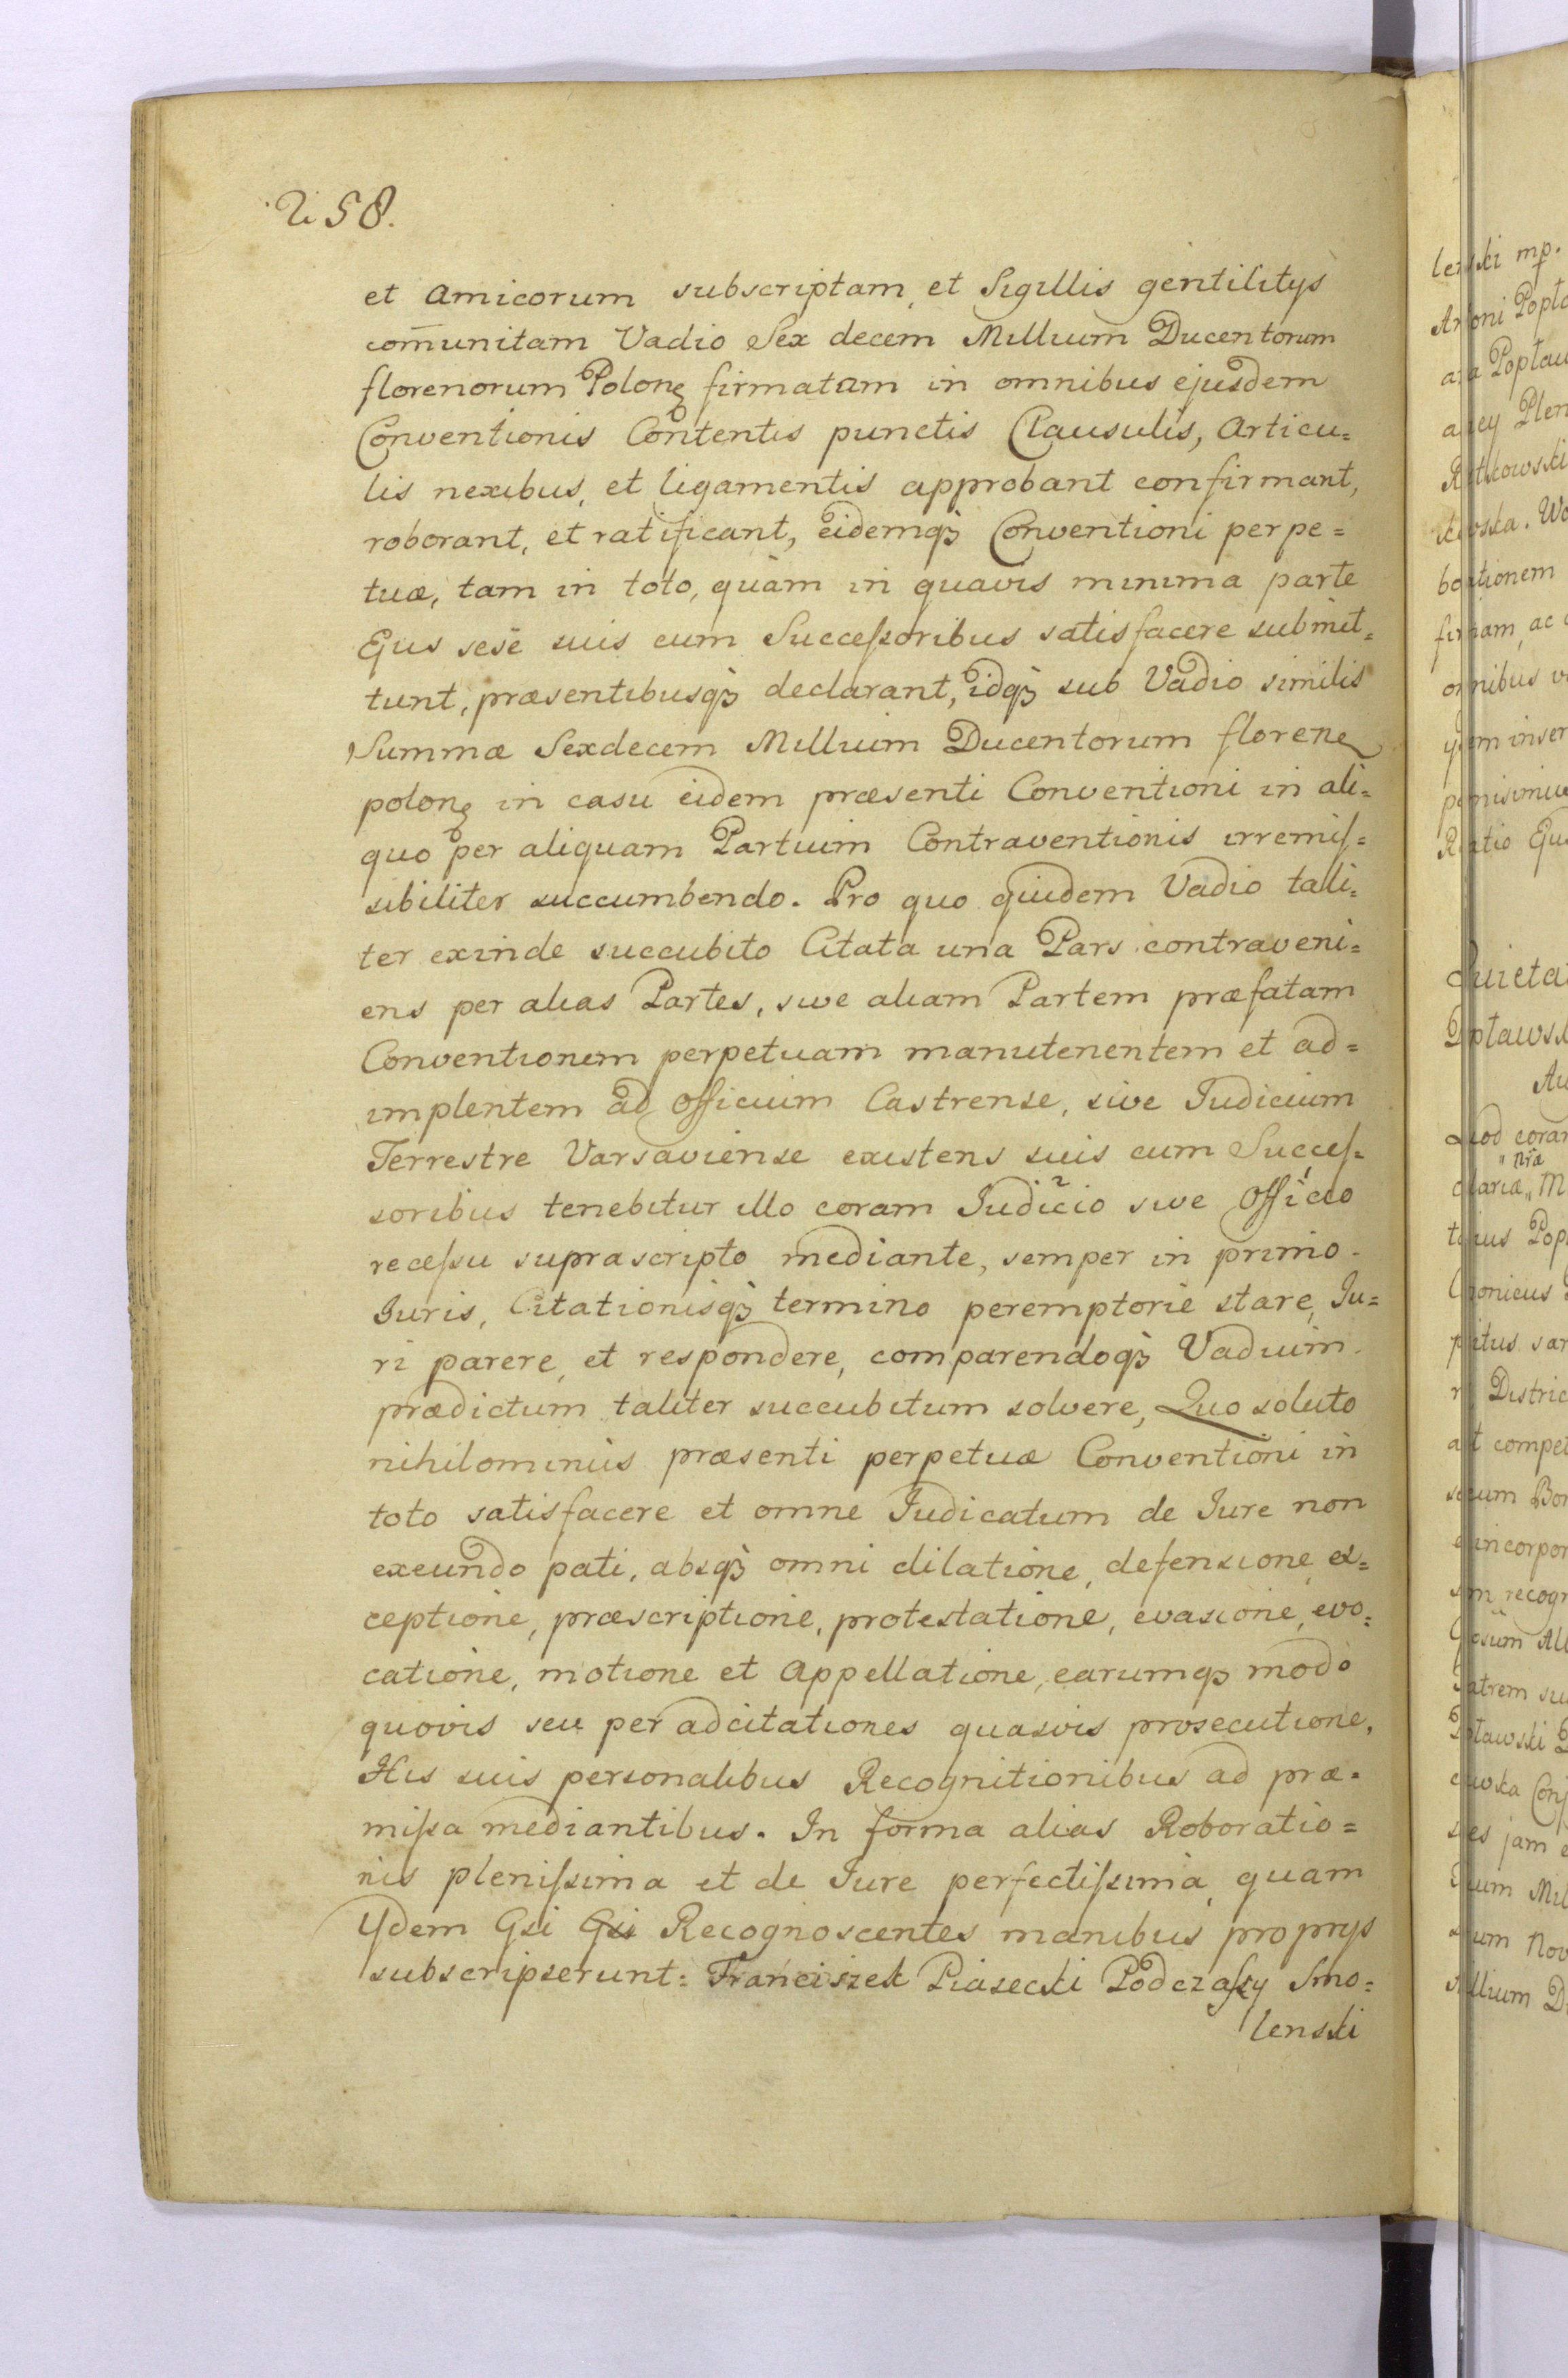 258.
et Amicorum subscriptam, et Sigillis gentilitÿs
com̄unitam Vadio Sex decem Millium Ducentorum
florenorum Polonꝝ firmatam in omnibus ejusdem
Conventionis Contentis punctis Clausulis, Articu=
lis nexibus, et ligamentis approbant confirmant,
roborant, et ratificant, eidemqꝫ Conventioni perpe=
tuæ, tam in toto, quàm in quavis minima parte
Ejus sesē suis cum Succeſsoribus satisfacere submit=
tunt, præsentibusqꝫ declarant, idqꝫ sub Vadio similis
Summæ Sexdecem Millium Ducentorum florenꝝ
polonꝝ in casu eidem præsenti Conventioni in ali=
quo per aliquam Partium Contraventionis irremiſ=
sibiliter succumbendo. Pro quo quidem Vadio tali=
ter exinde succubito Citata una Pars contraveni=
ens per alias Partes, sive aliam Partem præfatam
Conventionem perpetuam manutenentem et ad=
implentem ad Officium Castrense, sive Judicium
Terrestre Varsaviense existens suis cum Succeſ=
soribus tenebitur illo coram Judicio ² sive Officio ¹
receſsu suprascripto mediante, semper in primo
Juris, Citationisqꝫ termino peremptorie stare, Ju=
ri parere, et respondere, comparendoqꝫ Vadium
prædictum taliter succubitum solvere, Quo soluto
nihilominùs præsenti perpetuæ Conventioni in
toto satisfacere et omne Judicatum de Jure non
exeundo pati, absqꝫ omni dilatione, defensione, ex=
ceptione, præscriptione, protestatione, evasione, evo=
catione, motione et Appellatione, earumqꝫ modò
quovis seu per adcitationes quasvis prosecutione,
His suis personalibus Recognitionibus ad præ=
miſsa mediantibus. In forma alias Roboratio=
nis pleniſsima et de Jure perfectiſsima, quam
Ijdem Gsi Gsi Recognoscentes manibus proprijs
subscripserunt: Franciszek Piasecki Podczaſzy Smo=
lenski